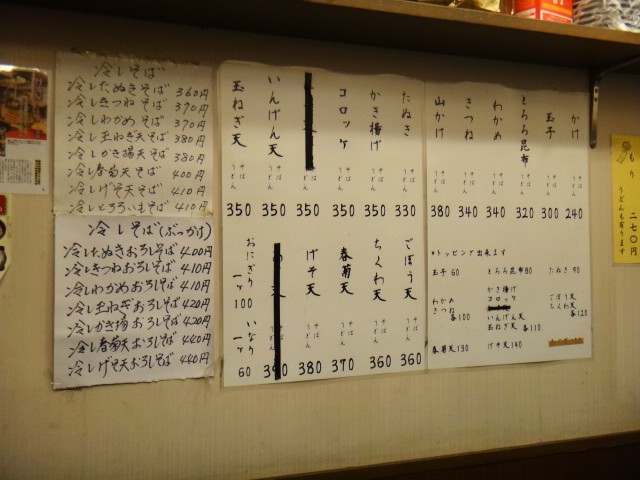 冷しそば
冷したぬきそば 360円
冷しきつねそば 370円
冷しわかめそば 370円
冷し玉ねぎ天そば 380円
冷しかき揚天そば 380円
冷し春菊天そば 400円
冷しげそ天そば 410円
冷しとろろいもそば 410円
冷しそば(ぶっかけ)
冷したぬきおろしそば 400円
冷しきつねおろしそば 410円
冷しわかめおろしそば 410円
冷し玉ねぎおろしそば 420円
冷しかき揚おろしそば 420円
冷し春菊天おろしそば 440円
冷しげそ天おろしそば 440円
かけ 240
玉子 300
とろろ昆布 320
わかめ 340
きつね 340
山かけ 380
たぬき そば うどん 330
かき揚げ そば うどん 350
コロッケ そば うどん 350
そば うどん 350
いんげん天 そば うどん 350
玉ねぎ天 そば うどん 350
ごぼう天 そば うどん 360
ちくわ天 そば うどん 360
春菊天 そば うどん 370
げそ天 そば うどん 380
390
おにぎり 一ヶ 100
いなり 一ヶ 60
*トッピング出来ます
玉子 60
とろろ昆布 80
たぬき 90
わかめ
きつね 各100
かき揚げ
コロッケ
いんげん天
玉ねぎ天 各110
ごぼう天
ちくわ天 各120
春菊天 130
げそ天 140
り 二七〇円
うどんも有ります